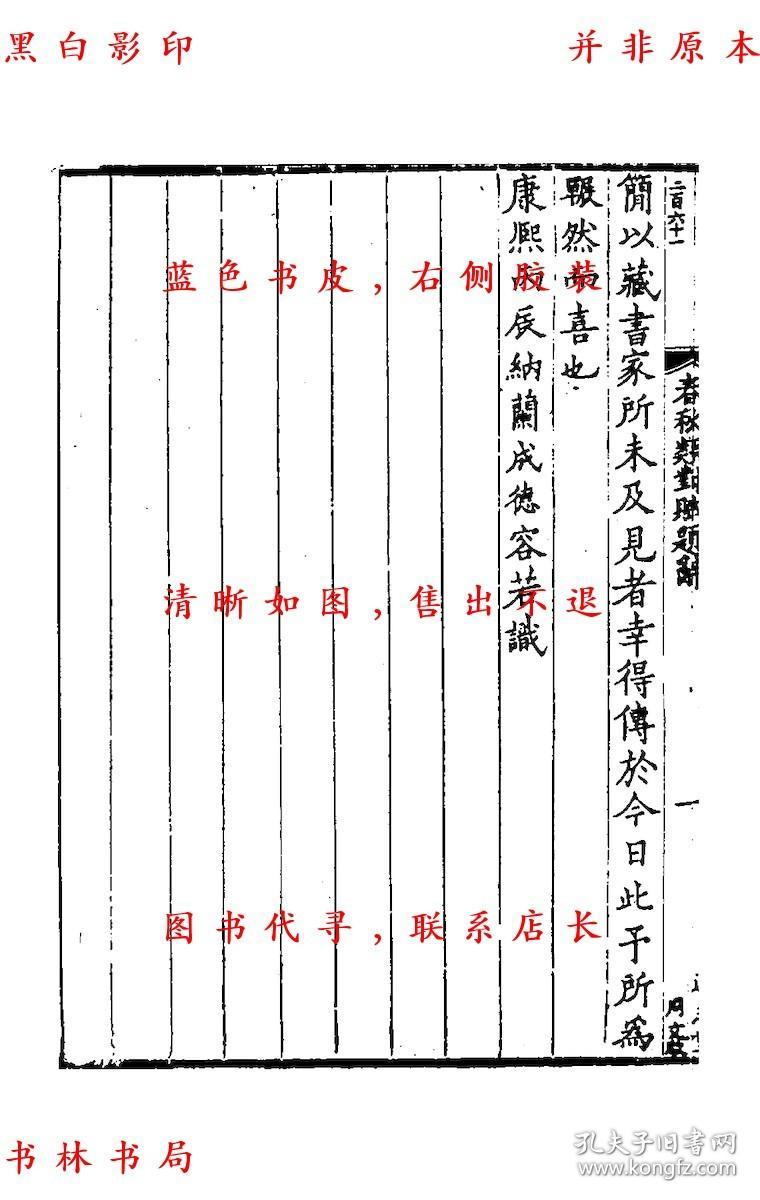 黑白影印
并非原本
二百六十一
春秋類對賦題辭
一
簡以藏書家所未及見者幸得傳於今日此予所為
囅然而喜也
康熙丙辰納蘭成德容若識
蓝色书皮，右侧胶装
清晰如图，售出不退
图书代寻，联系店长
书林书局
孔夫子旧书网
www.kongfz.com